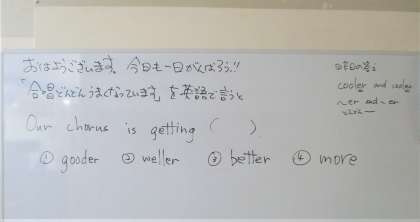 おはようございます。今日も一日がんばろう!!
「合唱どんどんうまくなっています」を英語で言うと
Our chorus is getting (   ).
① gooder ② weller ③ better ④ more
昨日の答え
cooler and cooler
~er and ~er
どんどん~